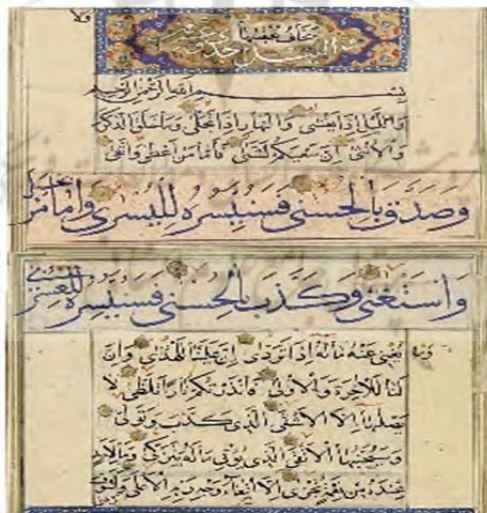 ولا
يخاف عقبيها
بسم الله الرحمن الرحيم
والليل اذا يغشى والنهار اذا تجلى وما خلق الذكر
والانثى ان سعيكم لشتى فاما من اعطى واتقى
وصدق بالحسنى فسنيسره لليسرى واما من بخل
واستغنى وكذب بالحسنى فسنيسره للعسرى
وما يغنى عنه ماله اذا تردى ان علينا للهدى وان
لنا للاخرة والاولى فانذرتكم نارا تلظى لا
يصليها الا الاشقى الذى كذب وتولى
وسيجنبها الاتقى الذى يؤتى ماله يتزكى وما لاحد
عنده من نعمة تجزى الا ابتغاء وجه ربه الاعلى ولسوف